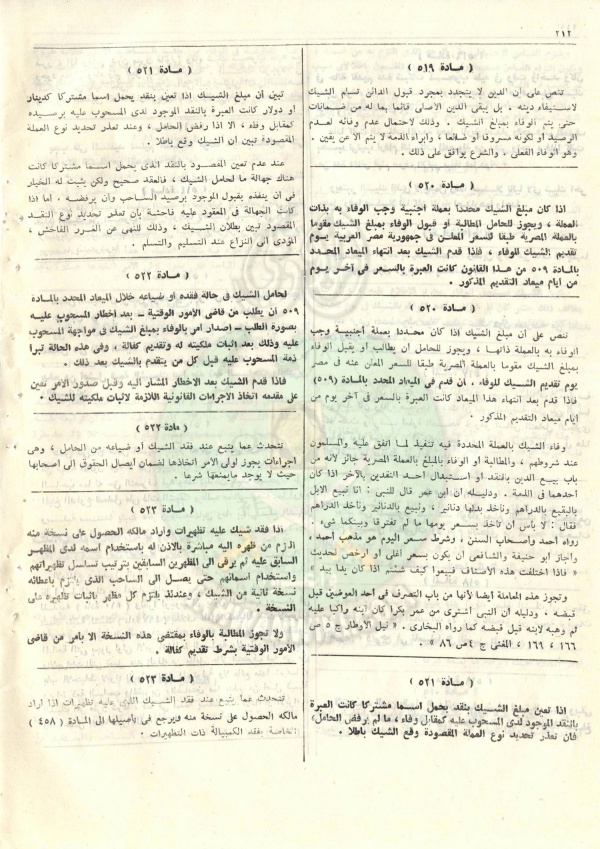 ٢١٢
( مادة ٥١٩ )
تنص على أن الدين لا يتجدد بمجرد قبول الدائن تسلم الشيك
لاستيفاء دينه . بل يبقى الدين الأصلى قائما بما له من ضمانات
حتى يتم الوفاء بمبلغ الشيك . وذلك لاحتمال عدم وفائه لعدم
الرصيد أو لكونه مسروقا أو ضائعا ، وابراء الذمة لا يتم الا عن يقين .
وهو الوفاء الفعلى ، والشرع يوافق على ذلك .
( مادة ٥٢٠ )
اذا كان مبلغ الشيك محددا بعملة أجنبية وجب الوفاء به بذات
العملة ، ويجوز للحامل المطالبة أو قبول الوفاء بمبلغ الشيك مقوما
بالعملة المصرية طبقا للسعر المعلن فى جمهورية مصر العربية يوم
تقديم الشيك للوفاء ، فاذا قدم الشيك بعد انتهاء الميعاد المحدد
بالمادة ٥٠٩ من هذا القانون كانت العبرة بالسعر فى آخر يوم
من أيام ميعاد التقديم المذكور .
( مادة ٥٢٠ )
تنص على أن مبلغ الشيك إذا كان محددا بعملة أجنبية وجب
الوفاء به بالعملة ذاتها ، ويجوز للحامل أن يطالب أو يقبل الوفاء
بمبلغ الشيك مقوما بالعملة المصرية طبقا للسعر المعلن عنه فى مصر
يوم تقديم الشيك للوفاء ، أن قدم فى الميعاد المحدد بالمادة (٥٠٩)
فاذا قدم بعد انتهاء هذا الميعاد كانت العبرة بالسعر فى آخر يوم من
أيام ميعاد التقديم المذكور .
وفاء الشيك بالعملة المحددة فيه تنفيذ لما اتفق عليه والمسلمون
عند شروطهم ، والمطالبة أو الوفاء بالمبلغ بالعملة المصرية جائز لأنه من
باب بيع الدين بالنقد أو استبدال أحد النقدين بالآخر اذا كان
أحدهما فى الذمة . ودليله أن ابن عمر قال للنبى : انا نبيع الابل
بالبقيع بالدراهم ونأخذ بدلها دنانير ، ونبيع بالدنانير ونأخذ الدراهم
فقال : لا بأس أن تأخذ بسعر يومها ما لم تفترقا وبينكما شىء .
رواه أحمد وأصحاب السنن ، وشرط سعر اليوم هو مذهب أحمد ،
وأجاز أبو حنيفة والشافعى أن يكون بسعر أغلى أو أرخص لحديث
« فاذا اختلفت هذه الأصناف فبيعوا كيف شئتم اذا كان يدا بيد »
وتجوز هذه المعاملة أيضا لأنها من باب التصرف فى أحد العوضين قبل
قبضه . ودليله أن النبى اشترى من عمر بكرا كان ابنه راكبا عليه
ثم وهبه لابنه قبل قبضه كما رواه البخارى . « نيل الأوطار ج ٥ ص
١٦٦ ، ١٦٩ ، المغنى ج ٤ ص ٨٦ » .
( مادة ٥٢١ )
اذا تعين مبلغ الشيك بنقد يحمل اسما مشتركا كانت العبرة
بالنقد الموجود لدى المسحوب عليه كمقابل وفاء ، ما لم يرفض الحامل)
فان تعذر تحديد نوع العملة المقصودة وقع الشيك باطلا .
( مادة ٥٢١ )
تبين أن مبلغ الشيك اذا تعين بنقد يحمل اسما مشتركا كدينار
أو دولار كانت العبرة بالنقد الموجود لدى المسحوب عليه برصيده
كمقابل وفاء ، الا اذا رفض الحامل ، وعند تعذر تحديد نوع العملة
المقصودة تبين أن الشيك وقع باطلا .
عند عدم تعين المقصود بالنقد الذى يحمل اسما مشتركا كانت
هناك جهالة ما لحامل الشيك ، فالعقد صحيح ولكن يثبت له الخيار
فى أن ينفذه بقبول الموجود برصيد الساحب وأن يرفضه . أما اذا
كانت الجهالة فى المعقود عليه فاحشة بأن تعذر تحديد نوع النقد
المقصود تبين بطلان الشيك ، وذلك للنهى عن الغرر الفاحش ،
المؤدى الى النزاع عند التسليم والتسلم .
( مادة ٥٢٢ )
لحامل الشيك فى حالة فقده أو ضياعه خلال الميعاد المحدد بالمادة
٥٠٩ أن يطلب من قاضى الأمور الوقتية – بعد اخطار المسحوب عليه
بصورة الطلب – اصدار أمر بالوفاء بمبلغ الشيك فى مواجهة المسحوب
عليه وذلك بعد اثبات ملكيته له وتقديم كفالة ، وفى هذه الحالة تبرأ
ذمة المسحوب عليه قبل كل من يتقدم بالشيك بعد ذلك .
فاذا قدم الشيك بعد الاخطار المشار اليه وقبل صدور الأمر تعين
على مقدمه اتخاذ الاجراءات القانونية اللازمة لاثبات ملكيته للشيك .
مادة ٥٢٢ )
تتحدث عما يتبع عند فقد الشيك أو ضياعه من الحامل ، وهى
اجراءات يجوز لولى الأمر اتخاذها لضمان ايصال الحقوق الى أصحابها
حيث لا يوجد ما يمنعها شرعا .
( مادة ٥٢٣ )
اذا فقد شيك عليه تظهيرات وأراد مالكه الحصول على نسخة منه
الزم من ظهره اليه مباشرة بالاذن له باستخدام اسمه لدى المظهر
السابق عليه ثم يرقى الى المظهرين السابقين بترتيب تسلسل تظهيراتهم
واستخدام أسمائهم حتى يصل الى الساحب الذى يلتزم باعطائه
نسخة ثانية من الشيك ، وعندئذ يلتزم كل مظهر باثبات تظهيره على
النسخة .
ولا تجوز المطالبة بالوفاء بمقتضى هذه النسخة الا بأمر من قاضى
الأمور الوقتية بشرط تقديم كفالة .
( مادة ٥٢٣ )
تتحدث عما يتبع عند فقد الشيك الذى عليه تظهيرات اذا أراد
مالكه الحصول على نسخة منه فيرجع فى تأصيلها الى المادة ( ٤٥٨ )
الخاصة بفقد الكمبيالة ذات التظهيرات .